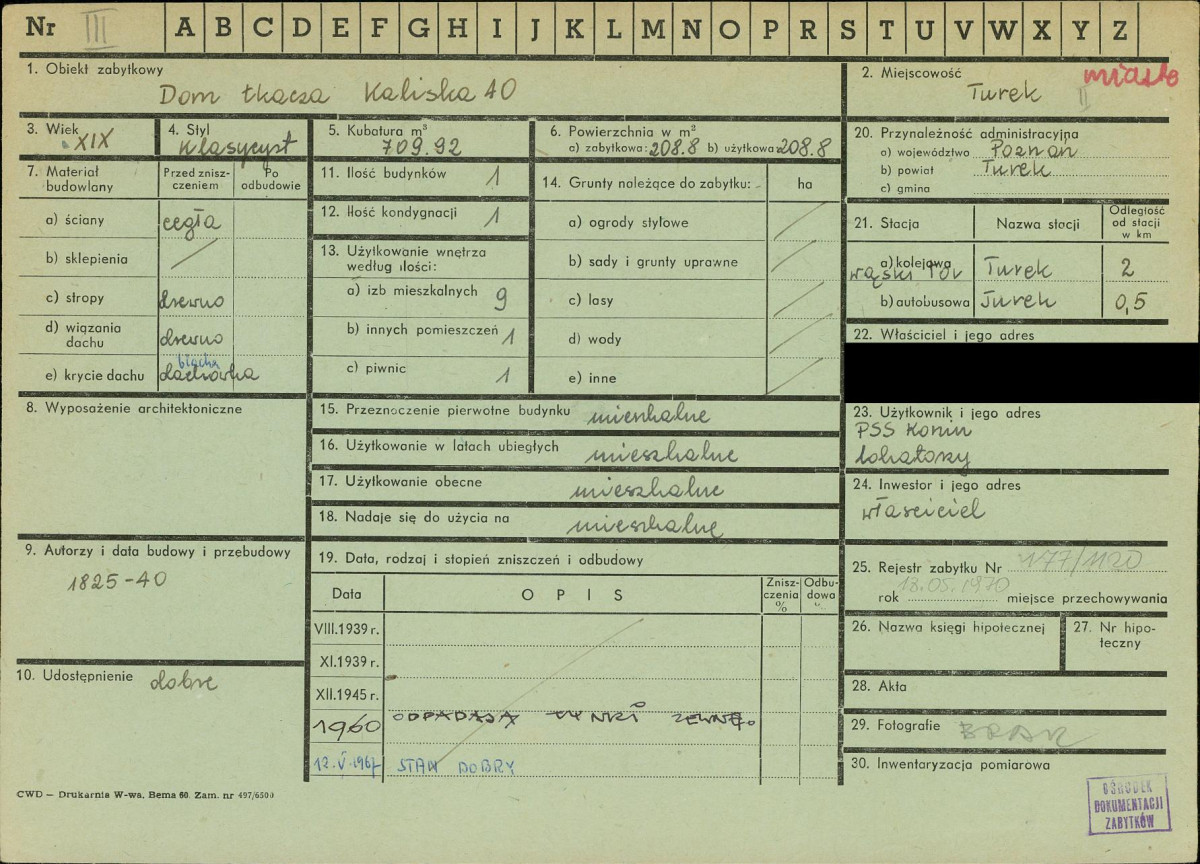 Nr III A B C D E F G H I J K L M N O P R S T U V W X Y Z
1. Obiekt zabytkowy
Dom tkacza Kaliska 40
2. Miejscowość
miasto
Turek II
3. Wiek
XIX
4. Styl
klasycyst
5. Kubatura m³
709.92
6. Powierzchnia w m²
a) zabytkowa: 208.8 b) użytkowa: 208.8
7. Materiał budowlany
Przed znisz-
czeniem
Po
odbudowie
a) ściany cegła
b) sklepienia
c) stropy drewno
d) wiązania
dachu drewno
blacha
e) krycie dachu dachówka
8. Wyposażenie architektoniczne
9. Autorzy i data budowy i przebudowy
1825-40
10. Udostępnienie dobre
11. Ilość budynków 1
12. Ilość kondygnacji 1
13. Użytkowanie wnętrza
według ilości:
a) izb mieszkalnych 9
b) innych pomieszczeń 1
c) piwnic 1
14. Grunty należące do zabytku: ha
a) ogrody stylowe
b) sady i grunty uprawne
c) lasy
d) wody
e) inne
15. Przeznoczenie pierwotne budynku mieszkalne
16. Użytkowanie w latach ubiegłych mieszkalne
17. Użytkowanie obecne mieszkalne
18. Nadaje się do użycia na mieszkalne
19. Data, rodzaj i stopień zniszczeń i odbudowy
Data
OPIS
Znisz-
czenia
%
Odbu-
dowa
%
VIII.1939 r.
XI.1939 r.
XII.1945 r.
1960 ODPADAJĄ TYNKI ZEWNĘ.
12.V.1967 STAN DOBRY
20. Przynależność administracyjna
a) województwo Poznań
b) powiat Turek
c) gmina
21. Stacja
Nazwa stacji
Odległość
od stacji
w km
a) kolejowa
wąski tor Turek 2
b) autobusowa Turek 0,5
22. Właściciel i jego adres
23. Użytkownik i jego adres
PSS Konin
lokatorzy
24. Inwestor i jego adres
właściciel
25. Rejestr zabytku Nr 177/1120
rok 18.05.1970 miejsce przechowywania
26. Nazwa księgi hipotecznej
27. Nr hipo-
teczny
28. Akta
29. Fotografie BRAK
30. Inwentaryzacja pomiarowa
CWD — Drukarnia W-wa, Bema 60. Zam. nr 497/6500
OŚRODEK
DOKUMENTACJI
ZABYTKÓW